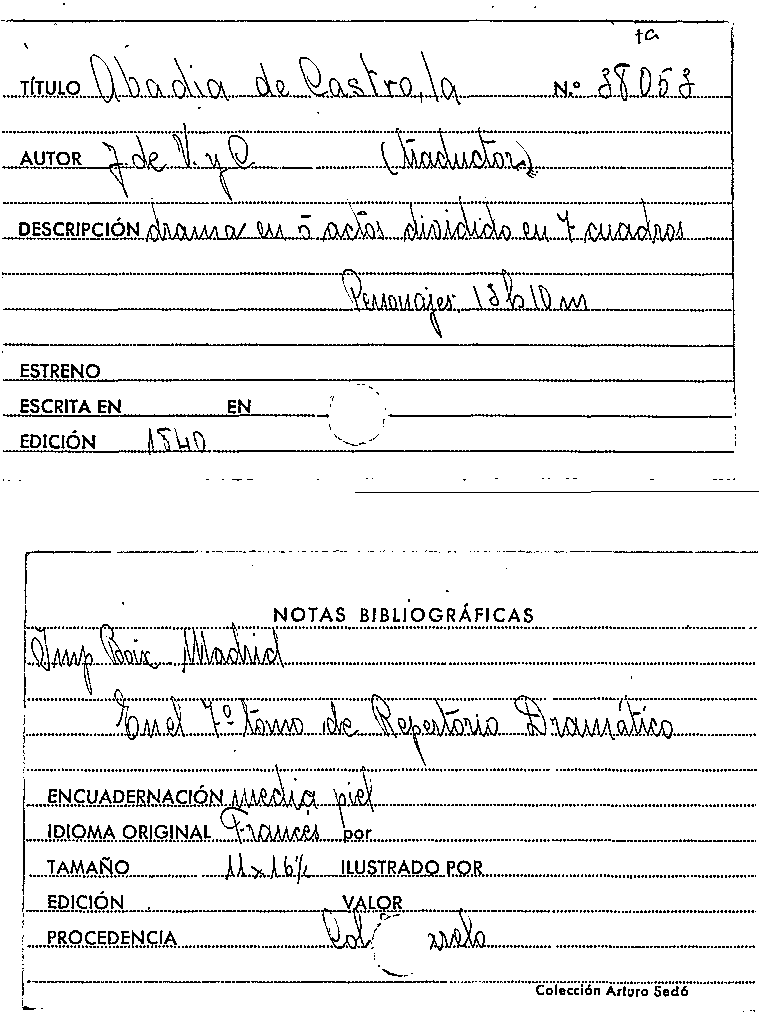 ta
TÍTULO Abadia de Castro, la N.º 38053
AUTOR J. de V. y C. (traductor)
DESCRIPCIÓN drama en 5 actos dividido en 7 cuadros
Personajes, 18 h 10 m
ESTRENO
ESCRITA EN EN
EDICIÓN 1840
NOTAS BIBLIOGRÁFICAS
Imp Boix Madrid
En el 7º tomo de Repertorio Dramático
ENCUADERNACIÓN media piel
IDIOMA ORIGINAL Francés por
TAMAÑO 11 x 16 ½ ILUSTRADO POR
EDICIÓN VALOR
PROCEDENCIA
Colección Arturo Sedó